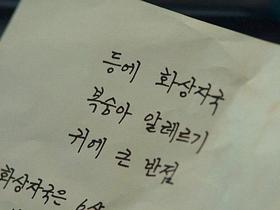 등에 화상자국
복숭아 알레르기
귀에 큰 반점
화상자국은 6살